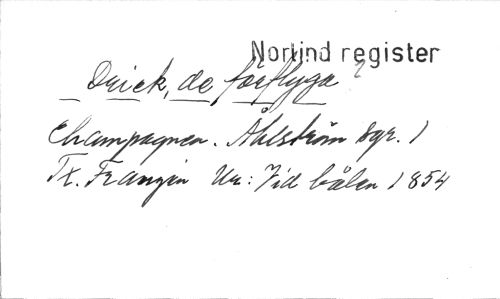 Norlind register
Drick, de förflyga
Champagnen. Åhlström Sgr. 1
Tx. Franzén Ur: Vid bålen 1854